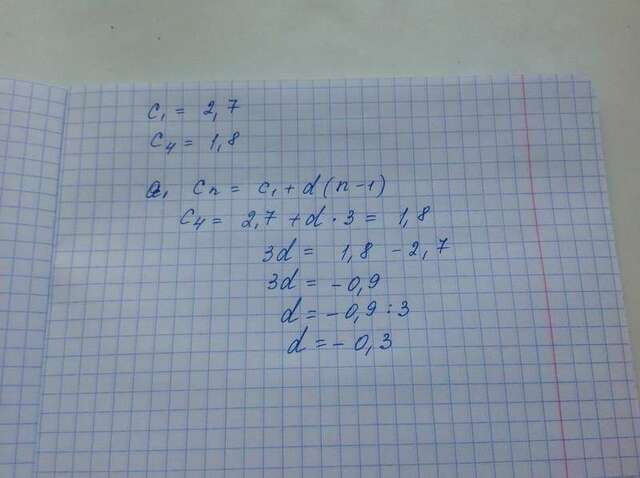 c₁ = 2,7
c₄ = 1,8
cₙ = c₁ + d(n-1)
c₄ = 2,7 + d · 3 = 1,8
3d = 1,8 - 2,7
3d = - 0,9
d = - 0,9 : 3
d = - 0,3